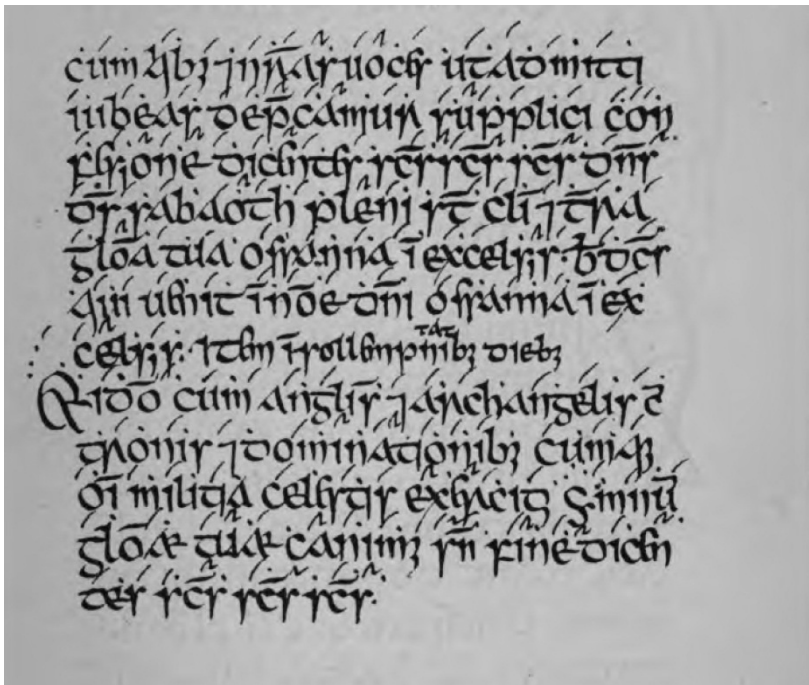 cum q̇bꝫ ⁊ nr̄as uoces ut admitti
iubeas dep̄camur supplici con
fessione dicentes sc̄s sc̄s sc̄s dn̄s
ds̄ sabaoth pleni st̄ cli̅ ⁊ t̄ra
glōa tua ossanna ī excelsis· b̄dc̄s
qui uenit ī nōe dn̄i ossanna ī ex
celsis· Item ī sollempn̄itatibꝫ diebꝫ
Et idō cum anglis̄ ⁊ archangelis c̄
tronis ⁊ dominationibꝫ cumqꝫ
oī militia celestis exercitꝰ ymnū
glōæ tuæ canimꝫ sn̄ fine dicen
tes sc̄s sc̄s sc̄s·